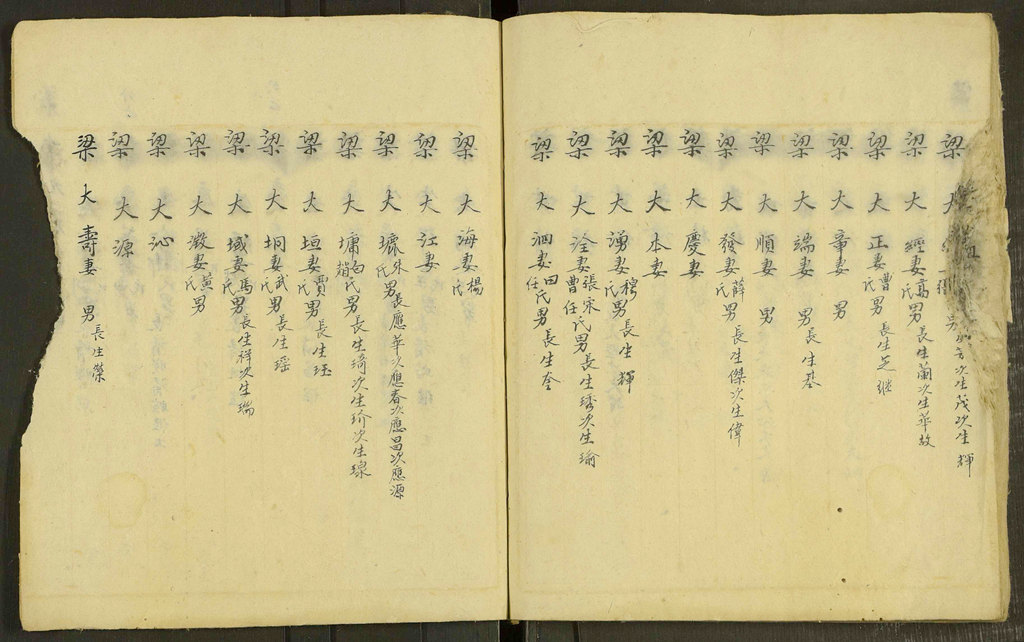 梁大 男 次生茂次生輝
梁大經妻高氏男長生蘭次生華故
梁大正妻曹氏男長生芝继
梁大章妻 男
梁大端妻 男長生基
梁大順妻 男
梁大發妻薛氏男長生傑次生偉
梁大慶妻
梁大本妻
梁大湧妻穆氏男長生輝
梁大詮妻張宋曹任氏男長生琇次生瑜
梁大泗妻田任氏男長生奎
梁大海妻楊氏
梁大江妻
梁大墉宋氏男長應華次應春次應昌次應源
梁大墉妻向趙氏男長生琦次生玠次生琭
梁大垣妻賈氏男長生珏
梁大坰妻武氏男長生瑶
梁大域妻馬氏男長生祥次生瑞
梁大澂妻黃氏男
梁大沁
梁大源
梁大壽妻 男長生榮